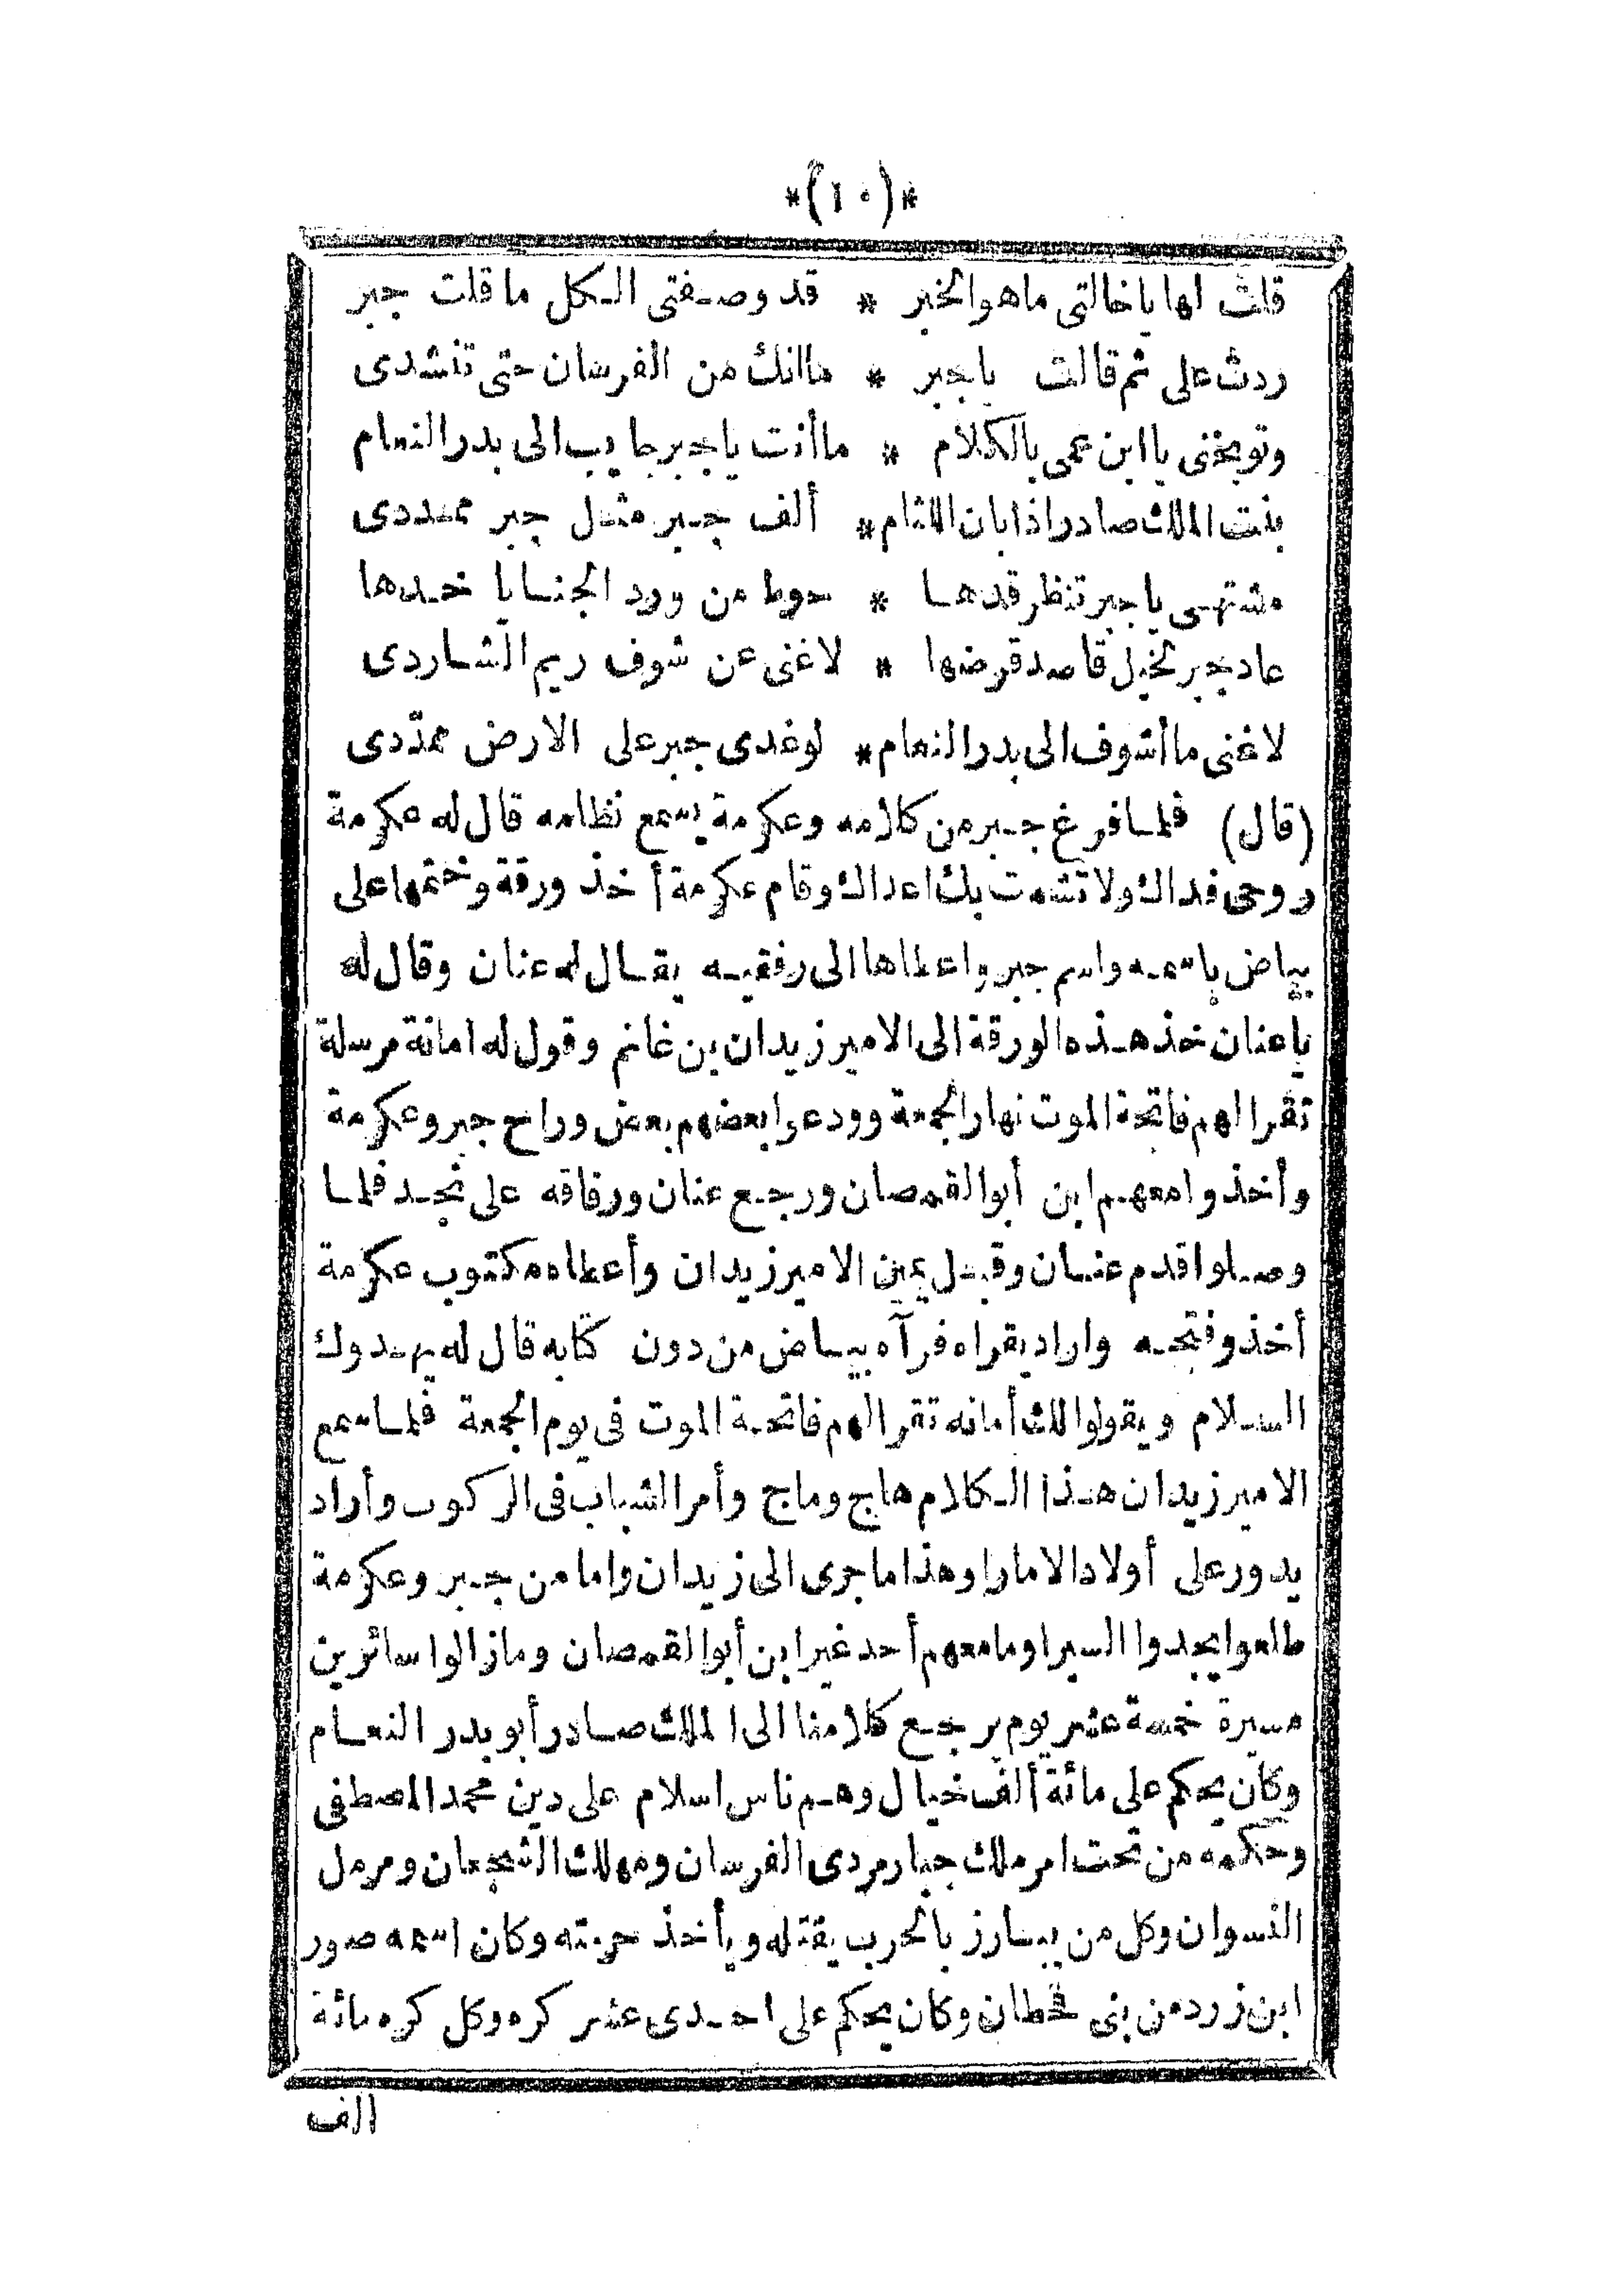 *(١٠)*
قلت لها يا خالتى ما هو الخبر * قد وصفتى الكل ما قلت جبر
ردت على ثم قالت يا جبر * ما انك من الفرسان حتى تنشدى
وتوبخنى يا ابن عمى بالكلام * ما أنت يا جبر جايب الى بدر النعام
بنت الملك صادر اذا بان اللثام * ألف جبر مثل جبر ممددى
مشتهى يا جبر تنظر قدها * حوط من ورد الجنايا خدها
عاد جبر تخيل قاصد قرضها * لا غنى عن شوف ريم الشاردى
لا غنى ما أشوف الى بدر النعام * لو غدى جبر على الارض ممدّدى
(قال) فلما فرغ جبر من كلامه وعكرمة يسمع نظامه قال له عكرمة
روحى فداك ولا تشمت بك اعداك وقام عكرمة أخذ ورقة وختمها على
بياض باسمه واسم جبر واعطاها الى رفقيه يقال له عنان وقال له
يا عنان خذ هذه الورقة الى الامير زيدان بن غانم وقول له امانة مرسلة
تقرا لهم فاتحة الموت نهار الجمعة وودعوا بعضهم بعض وراح جبر وعكرمة
وأخذوا معهم ابن أبو القمصان ورجع عنان ورفاقه على نجد فلما
وصلوا قدم عنان وقبل يمين الامير زيدان وأعطاه مكتوب عكرمة
أخذ وفتحه واراد يقراه فرآه بياض من دون كتابه قال له يهدوك
السلام ويقولوا لك أمانه تقرا لهم فاتحة الموت فى يوم الجمعة فلما سمع
الامير زيدان هذا الكلام هاج وماج وأمر الشباب فى الركوب وأراد
يدور على أولاد الامارا وهذا ما جرى الى زيدان واما من جبر وعكرمة
طلعوا يجدوا السيرا وما معهم أحد غير ابن أبو القمصان وما زالوا سائرين
مسيرة خمسة عشر يوم يرجع كلامنا الى الملك صادر أبو بدر النعام
وكان يحكم على مائة ألف خيال وهم ناس اسلام على دين محمد المصطفى
وحكمه من تحت امر ملك جبار مردى الفرسان ومهلك الشجعان ومرمل
النسوان وكل من يبارز بالحرب يقتله ويأخذ حرمته وكان اسمه صور
ابن زرد من بنى قحطان وكان يحكم على احدى عشر كره وكل كره مائة
الف